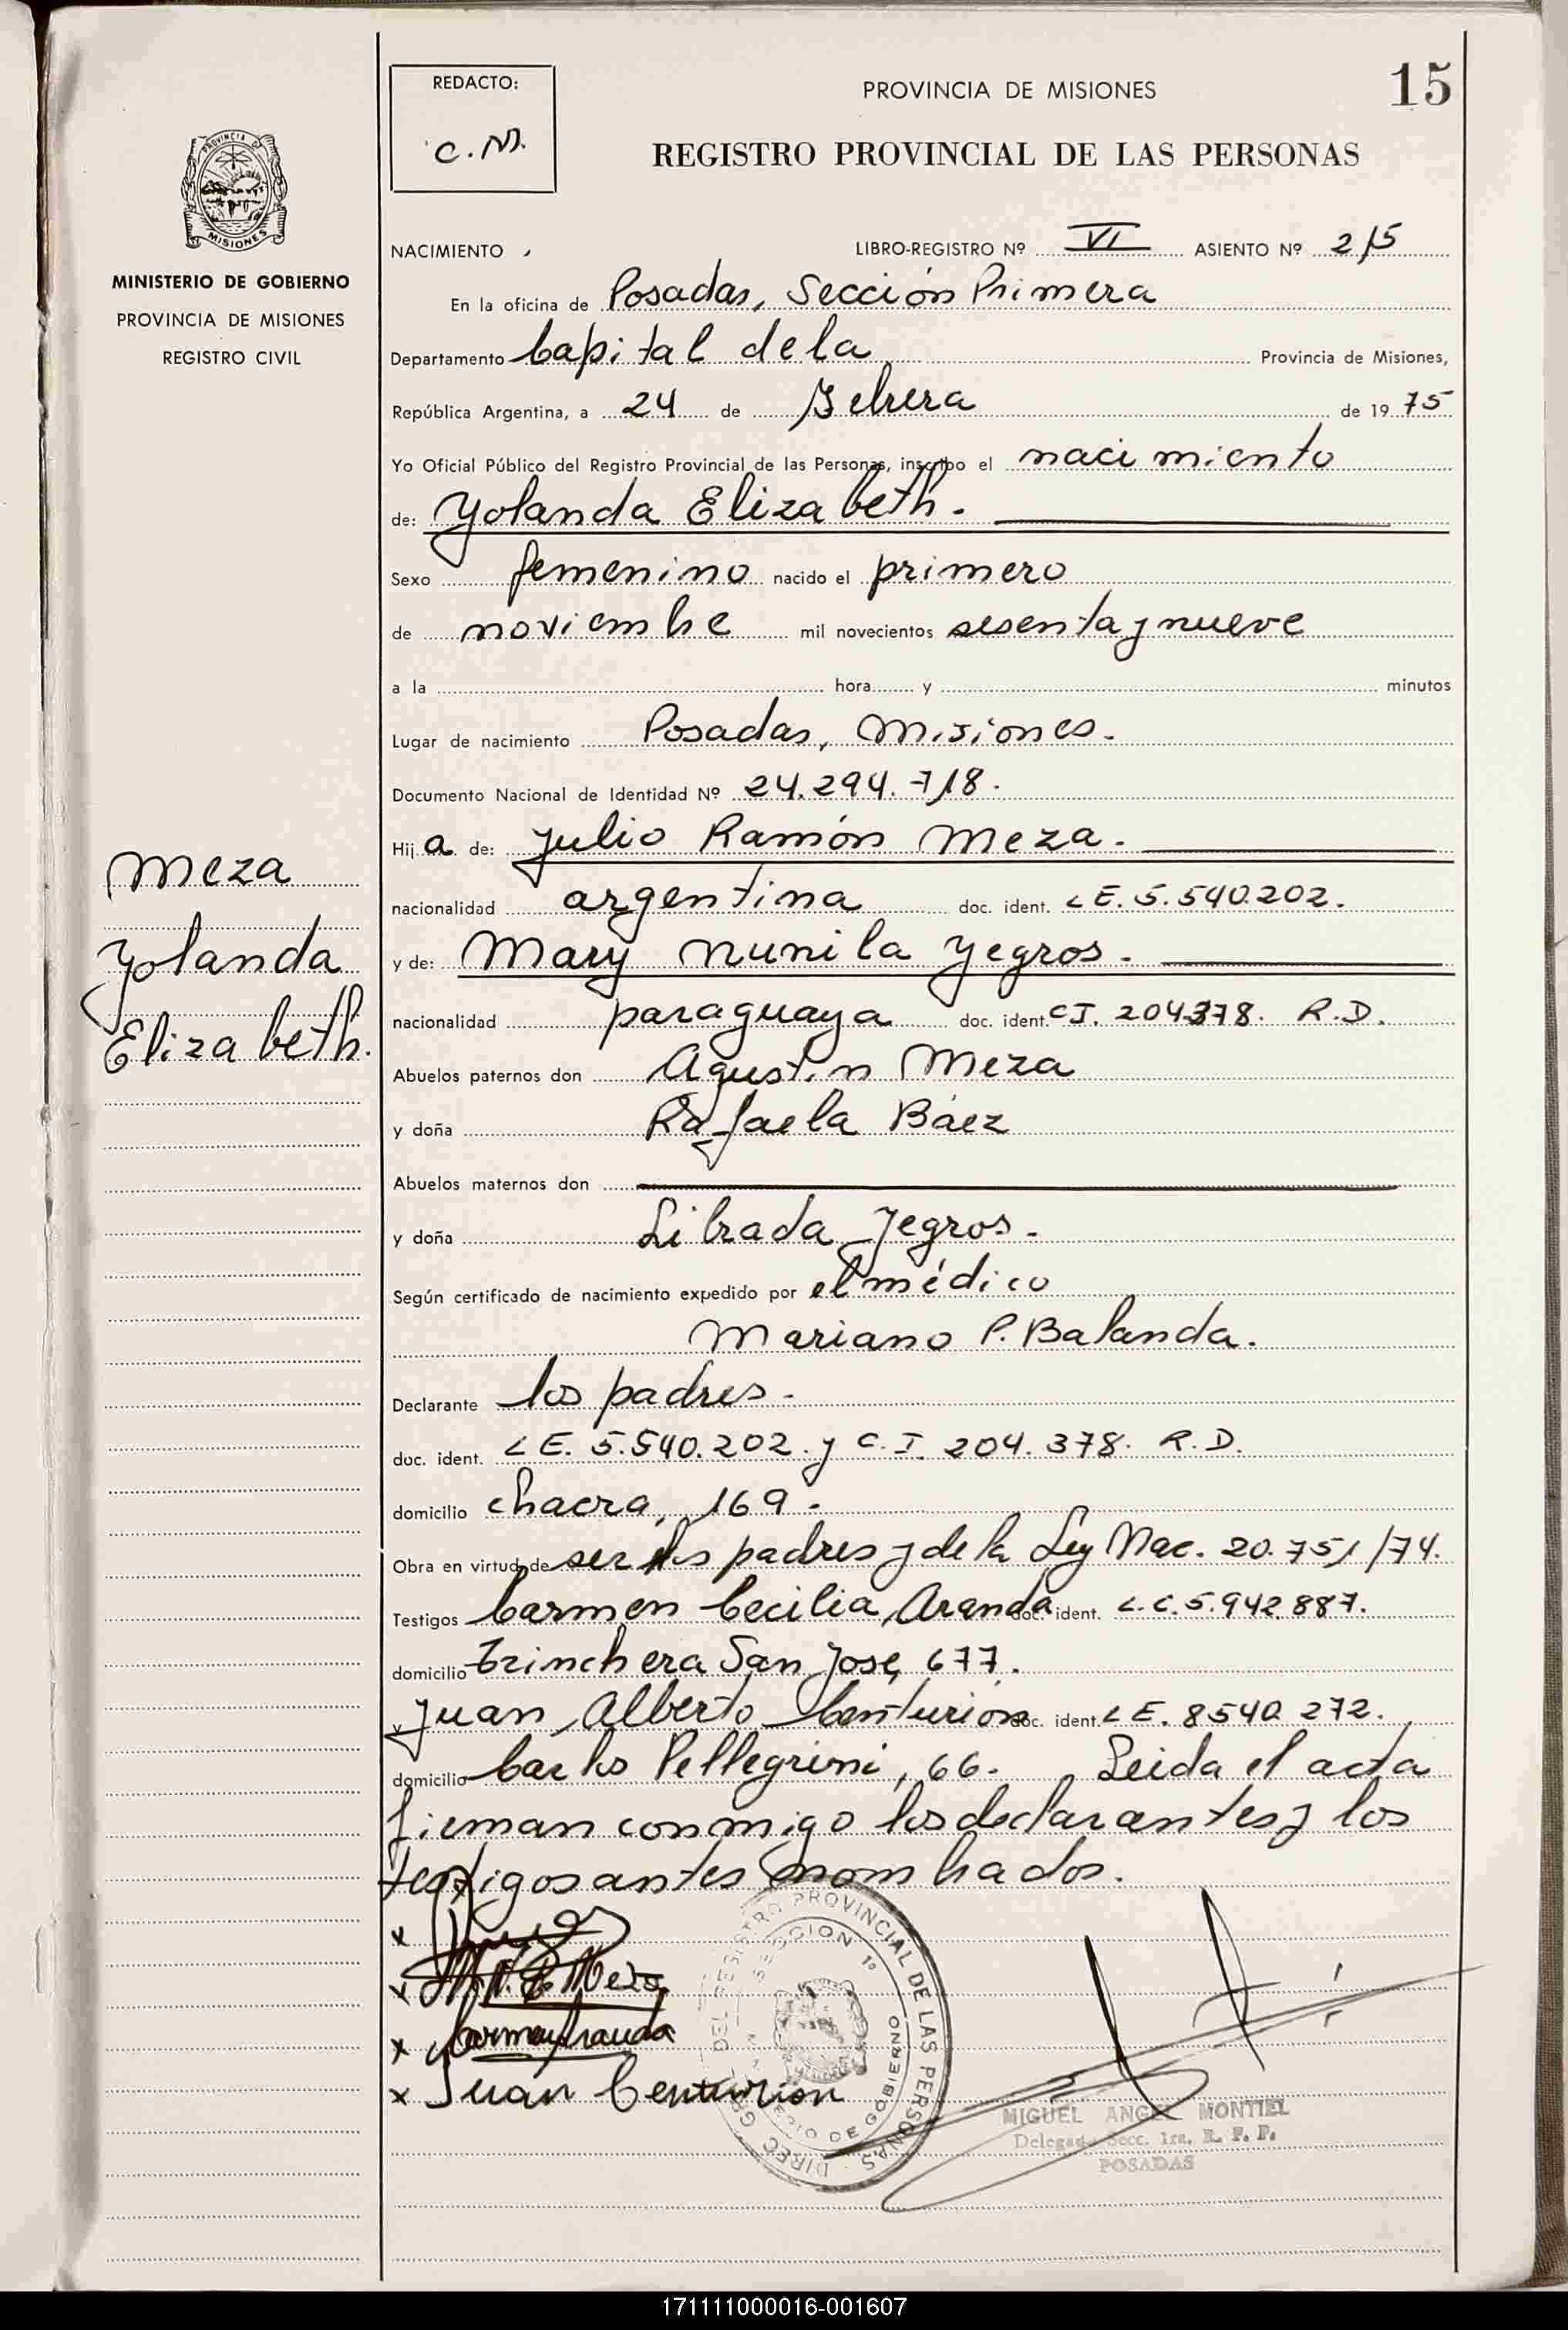 15
REDACTO:
C.M.
PROVINCIA DE MISIONES
REGISTRO PROVINCIAL DE LAS PERSONAS
PROVINCIA DE
MISIONES
MINISTERIO DE GOBIERNO
PROVINCIA DE MISIONES
REGISTRO CIVIL
NACIMIENTO LIBRO-REGISTRO Nº VI ASIENTO Nº 215
En la oficina de Posadas, Sección Primera
Departamento Capital de la Provincia de Misiones,
República Argentina, a 24 de Febrero de 1975
Yo Oficial Público del Registro Provincial de las Personas, inscribo el nacimiento
de: Yolanda Elizabeth.
Sexo femenino nacido el primero
de noviembre mil novecientos sesenta y nueve
a la hora y minutos
Lugar de nacimiento Posadas, Misiones.
Documento Nacional de Identidad Nº 24.294.718.
Hija de: Julio Ramón Meza.
nacionalidad argentina doc. ident. LE. 5.540.202.
y de: Mary Nunila Yegros.
nacionalidad paraguaya doc. ident. CI. 204378. R.D.
Abuelos paternos don Agustin Meza
y doña Rafaela Báez
Abuelos maternos don
y doña Librada Yegros.
Según certificado de nacimiento expedido por el médico
Mariano P. Balanda.
Declarante los padres.
doc. ident. LE. 5.540.202. y C.I. 204.378. R.D.
domicilio chacra, 169.
Obra en virtud de ser los padres y de la Ley Nac. 20.751/74.
Testigos Carmen Cecilia Aranda doc. ident. L.C. 5.942.887.
domicilio Trinchera San José, 677.
y Juan Alberto Centurión doc. ident. LE. 8540 272.
domicilio Carlos Pellegrini, 66. Leida el acta
firman conmigo los declarantes y los
testigos antes nombrados.
x
x
x Carmen Aranda
x Juan Centurión
Meza
Yolanda
Elizabeth.
DIREC. GRAL. DEL REGISTRO PROVINCIAL DE LAS PERSONAS
SECCION 1º
DE GOBIERNO
MIGUEL ANGEL MONTIEL
Delegado Secc. 1ra. R. P. P.
POSADAS
171111000016-001607